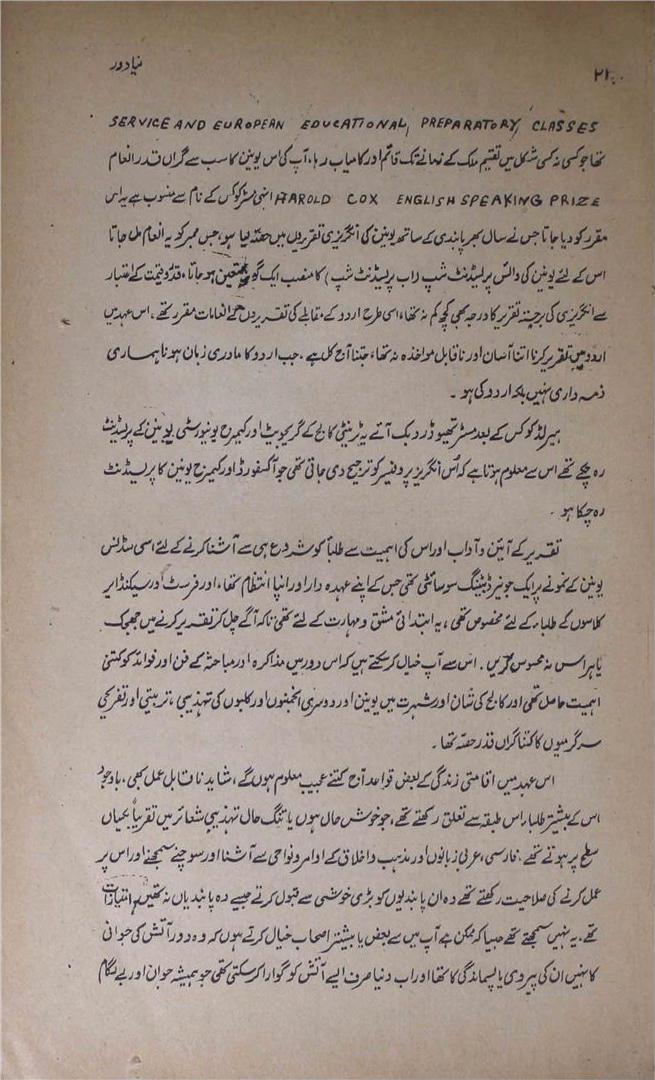 ۲۱۰ نیا دور
SERVICE AND EUROPEAN EDUCATIONAL, PREPARATORY, CLASSES
تھا جو کسی نہ کسی شکل میں تقسیم ملک کے زمانے تک قائم اور کامیاب رہا، آپ کی اس یونین کا سب سے گراں قدر انعام
HAROLD COX ENGLISH SPEAKING PRIZE انہی مسٹر کوکس کے نام سے منسوب ہے یہ اس
مقرر کو دیا جاتا جس نے سال بھر پابندی کے ساتھ یونین کی انگریزی تقریروں میں حصّہ لیا ہو، جس ممبر کو یہ انعام مل جاتا
اس کے لئے یونین کی وائس پریسیڈنٹ شپ (اب پریسیڈنٹ شپ) کا منصب ایک گونہ متعین ہو جاتا، قدر و قیمت کے اعتبار
سے انگریزی کی برجستہ تقریر کا درجہ بھی کچھ کم نہ تھا، اسی طرح اردو کے مقابلے کی تقریروں کے انعامات مقرر تھے۔ اس عہد میں
اردو میں تقریر کرنا اتنا آسان اور ناقابل مواخذہ نہ تھا، جتنا آج کل ہے۔ جب اردو کا مادری زبان ہونا ہماری
ذمہ داری نہیں بلکہ اردو کی ہو ۔
ہیرلڈ کوکس کے بعد مسٹر تھیوڈر بک آئے یہ ٹرینٹی کالج کے گریجویٹ اور کیمبرج یونیورسٹی یونین کے پریسیڈنٹ
رہ چکے تھے اس سے معلوم ہوتا ہے کہ اُس انگریز پروفیسر کو ترجیح دی جاتی تھی جو آکسفورڈ اور کیمبرج یونین کا پریسیڈنٹ
رہ چکا ہو ۔
تقریر کے آئین و آداب اور اس کی اہمیت سے طلبا کو شروع ہی سے آشنا کرنے کے لئے اسی سڈنس
یونین کے نمونے پر ایک جونیر ڈبیٹنگ سوسائٹی تھی جس کے اپنے عہدہ دار اور اپنا انتظام تھا، اور فرسٹ اور سیکنڈ ایر
کلاسوں کے طلباء کے لئے مخصوص تھی، یہ ابتدائی مشق و مہارت کے لئے تھی تاکہ آگے چل کر تقریر کرنے میں جھجک
یا ہراس نہ محسوس کریں۔ اس سے آپ خیال کر سکتے ہیں کہ اس دور میں مذاکرہ اور مباحثہ کے فن اور فوائد کو کتنی
اہمیت حاصل تھی اور کالج کی شان اور شہرت میں یونین اور دوسری انجمنوں اور کلبوں کی تہذیبی، تربیتی اور تفریحی
سرگرمیوں کا کتنا گراں قدر حصّہ تھا ۔
اس عہد میں اقامتی زندگی کے بعض قواعد آج کتنے عجیب معلوم ہوں گے، شاید ناقابل عمل بھی۔ باوجود
اس کے بیشتر طلبا، اس طبقہ سے تعلق رکھتے تھے، جو خوش حال ہوں یا تنگ حال تہذیبی شعائر میں تقریباً یکساں
سطح پر ہوتے تھے، فارسی، عربی زبانوں اور مذہب و اخلاق کے اوامر و نواحی سے آشنا اور سوچنے سمجھنے اور اس پر
عمل کرنے کی صلاحیت رکھتے تھے وہ ان پابندیوں کو بڑی خوشی سے قبول کرتے جیسے وہ پابندیاں نہ تھیں، امتیازات
تھے۔ یہ نہیں سمجھتے تھے جیسا کہ ممکن ہے آپ میں سے بعض یا بیشتر اصحاب خیال کرتے ہوں کہ وہ دور آتش کی جوانی
کا نہیں ان کی پیروی یا پسماندگی کا تھا اور اب دنیا صرف ایسے آتش کو گوارا کر سکتی تھی جو ہمیشہ جوان اور بے لگام